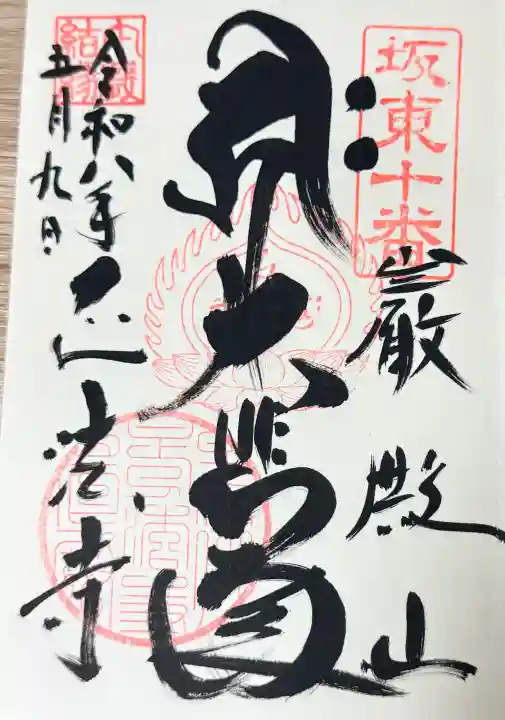 坂東十番
巌殿山
大悲閣
正法寺
令和八年
五月九日